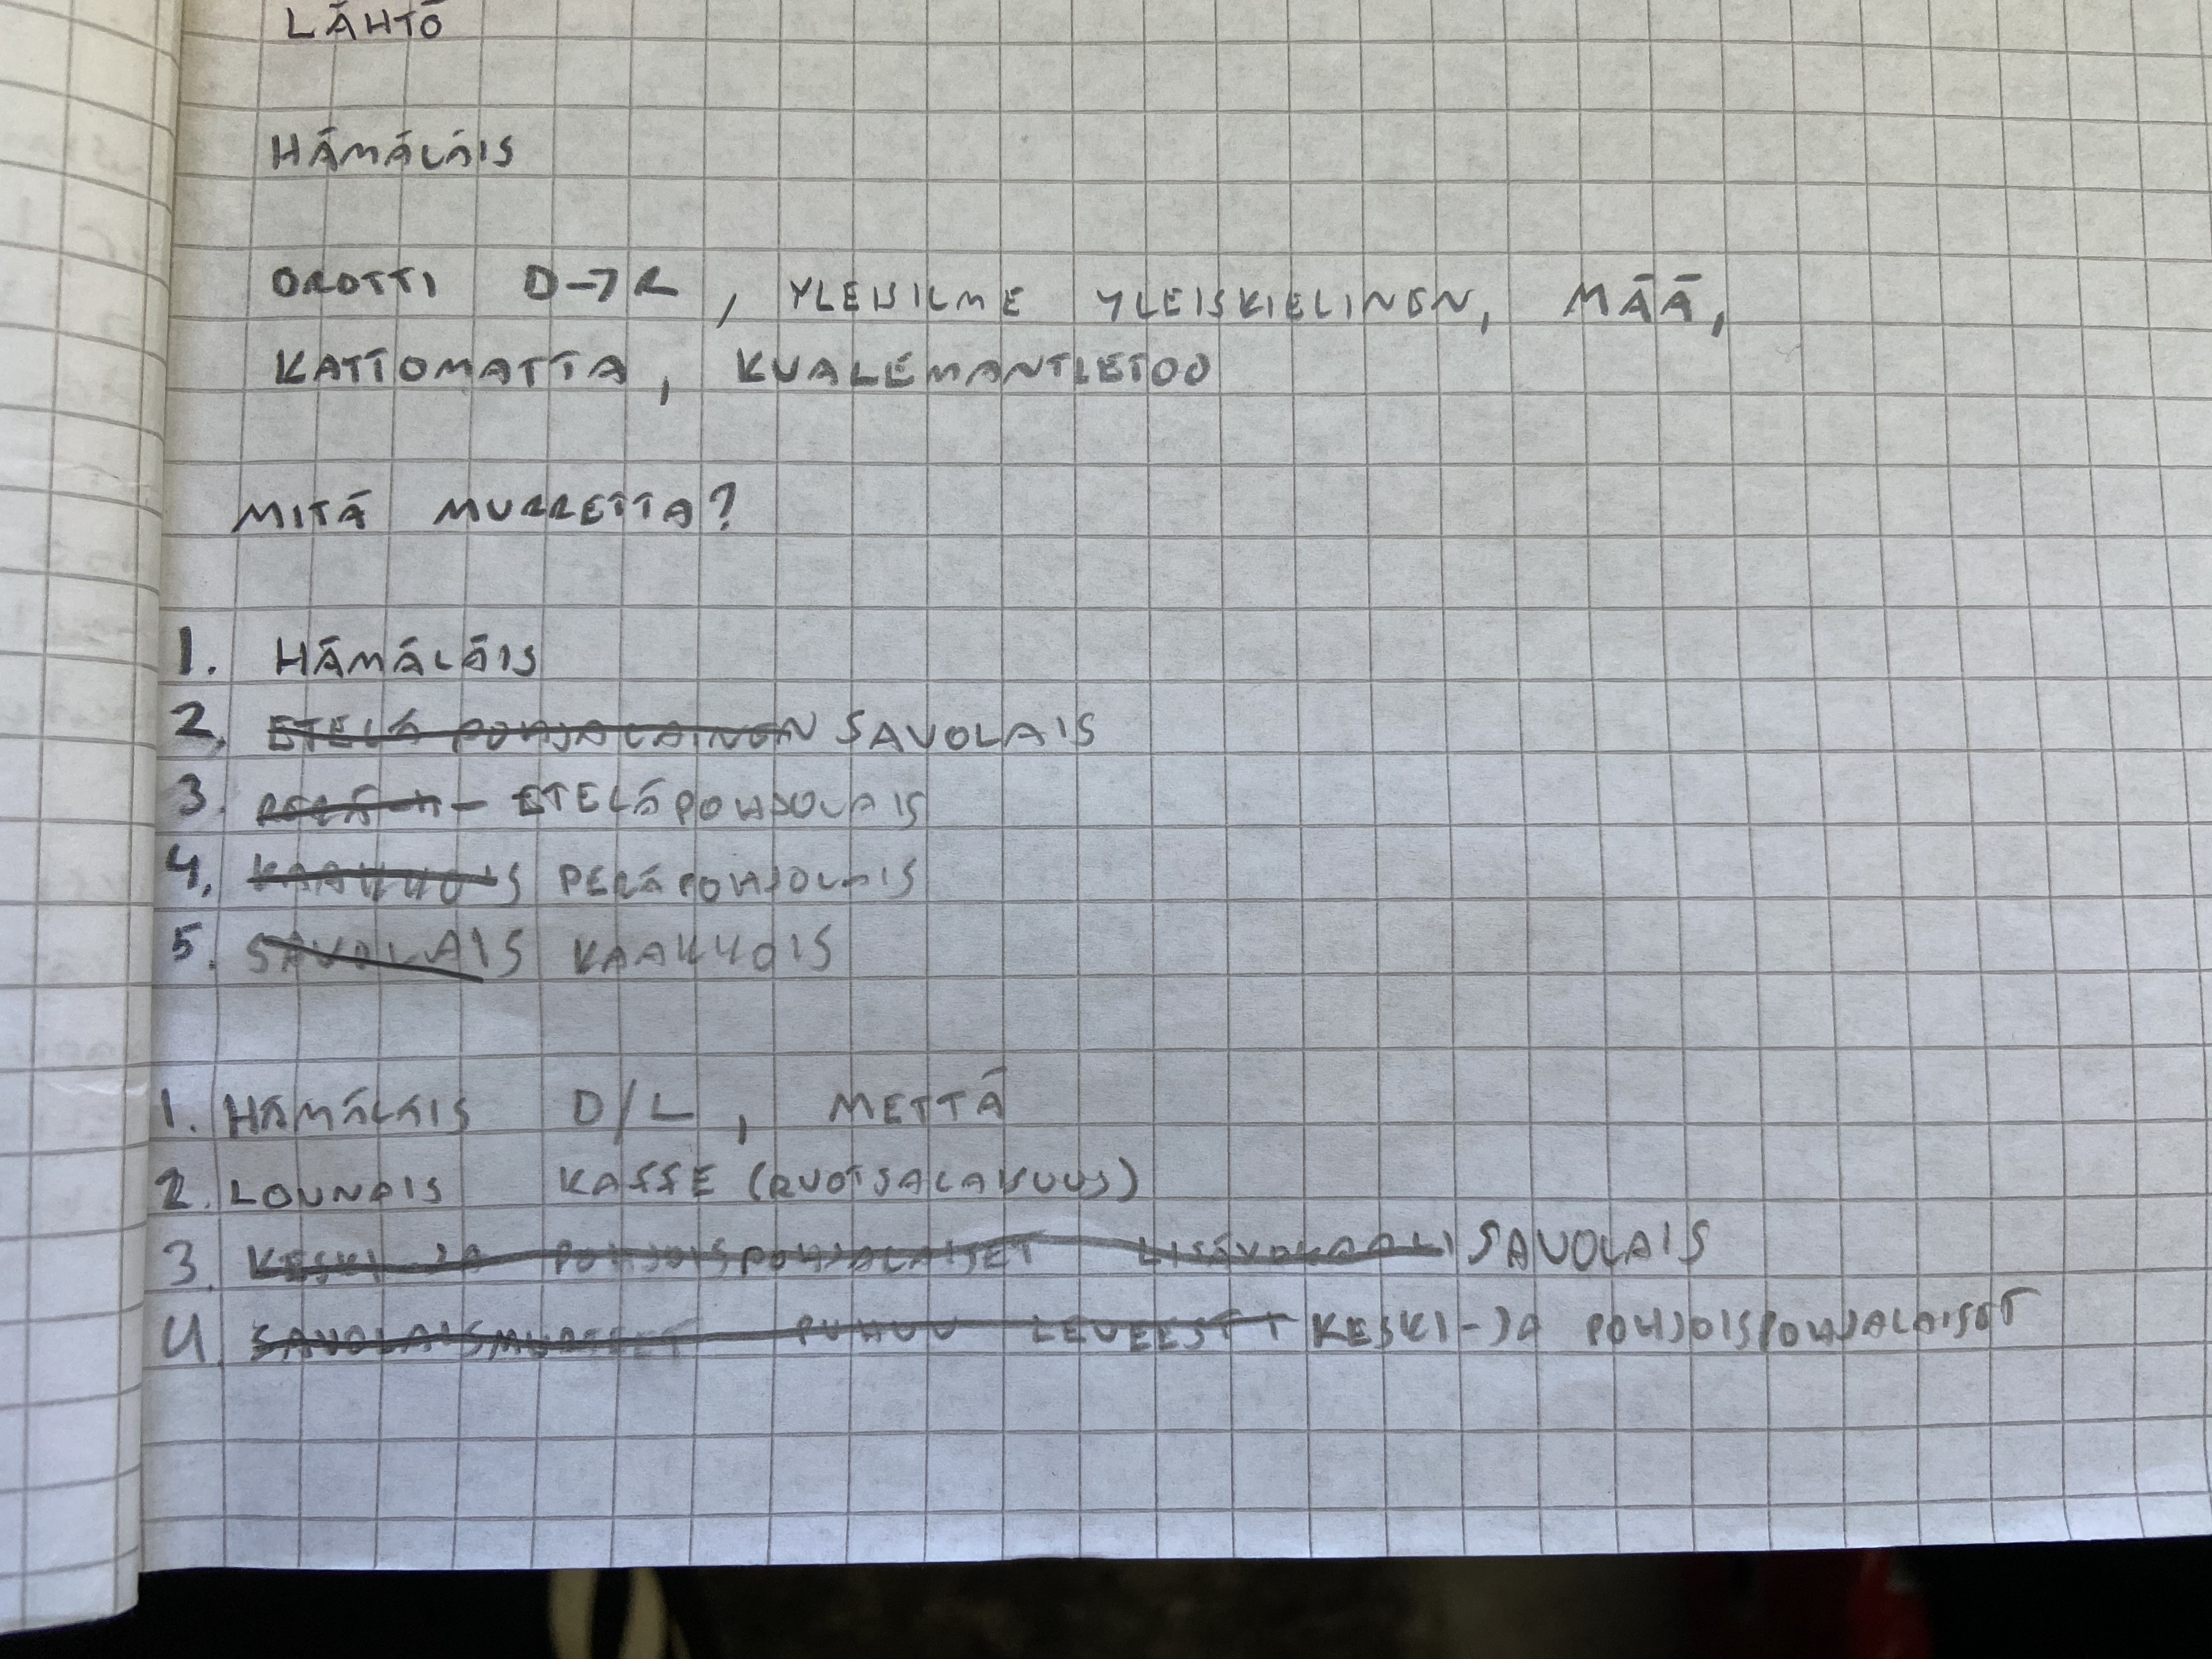 LÄHTÖ
HÄMÄLÄIS
OROTTI D→R, YLEISILME YLEISKIELINEN, MÄÄ,
KATTOMATTA, KUALEMANTLETOO
MITÄ MURRETTA?
1. HÄMÄLÄIS
2. ETELÄ POHJALAINEN SAVOLAIS
3. ETELÄPOHJOLAIS
4. KAAKKOIS PERÄPOHJOLAIS
5. SAVOLAIS KAAKKOIS
1. HÄMÄLÄIS D/L, METTÄ
2. LOUNAIS KAFFE (RUOTSALAISUUS)
3. KESKI-JA POHJOISPOHJALAISET LISÄVOKAALI SAVOLAIS
4. SAVOLAISMURTEET PUHUU LEVEEST KESKI-JA POHJOISPOHJALAISET